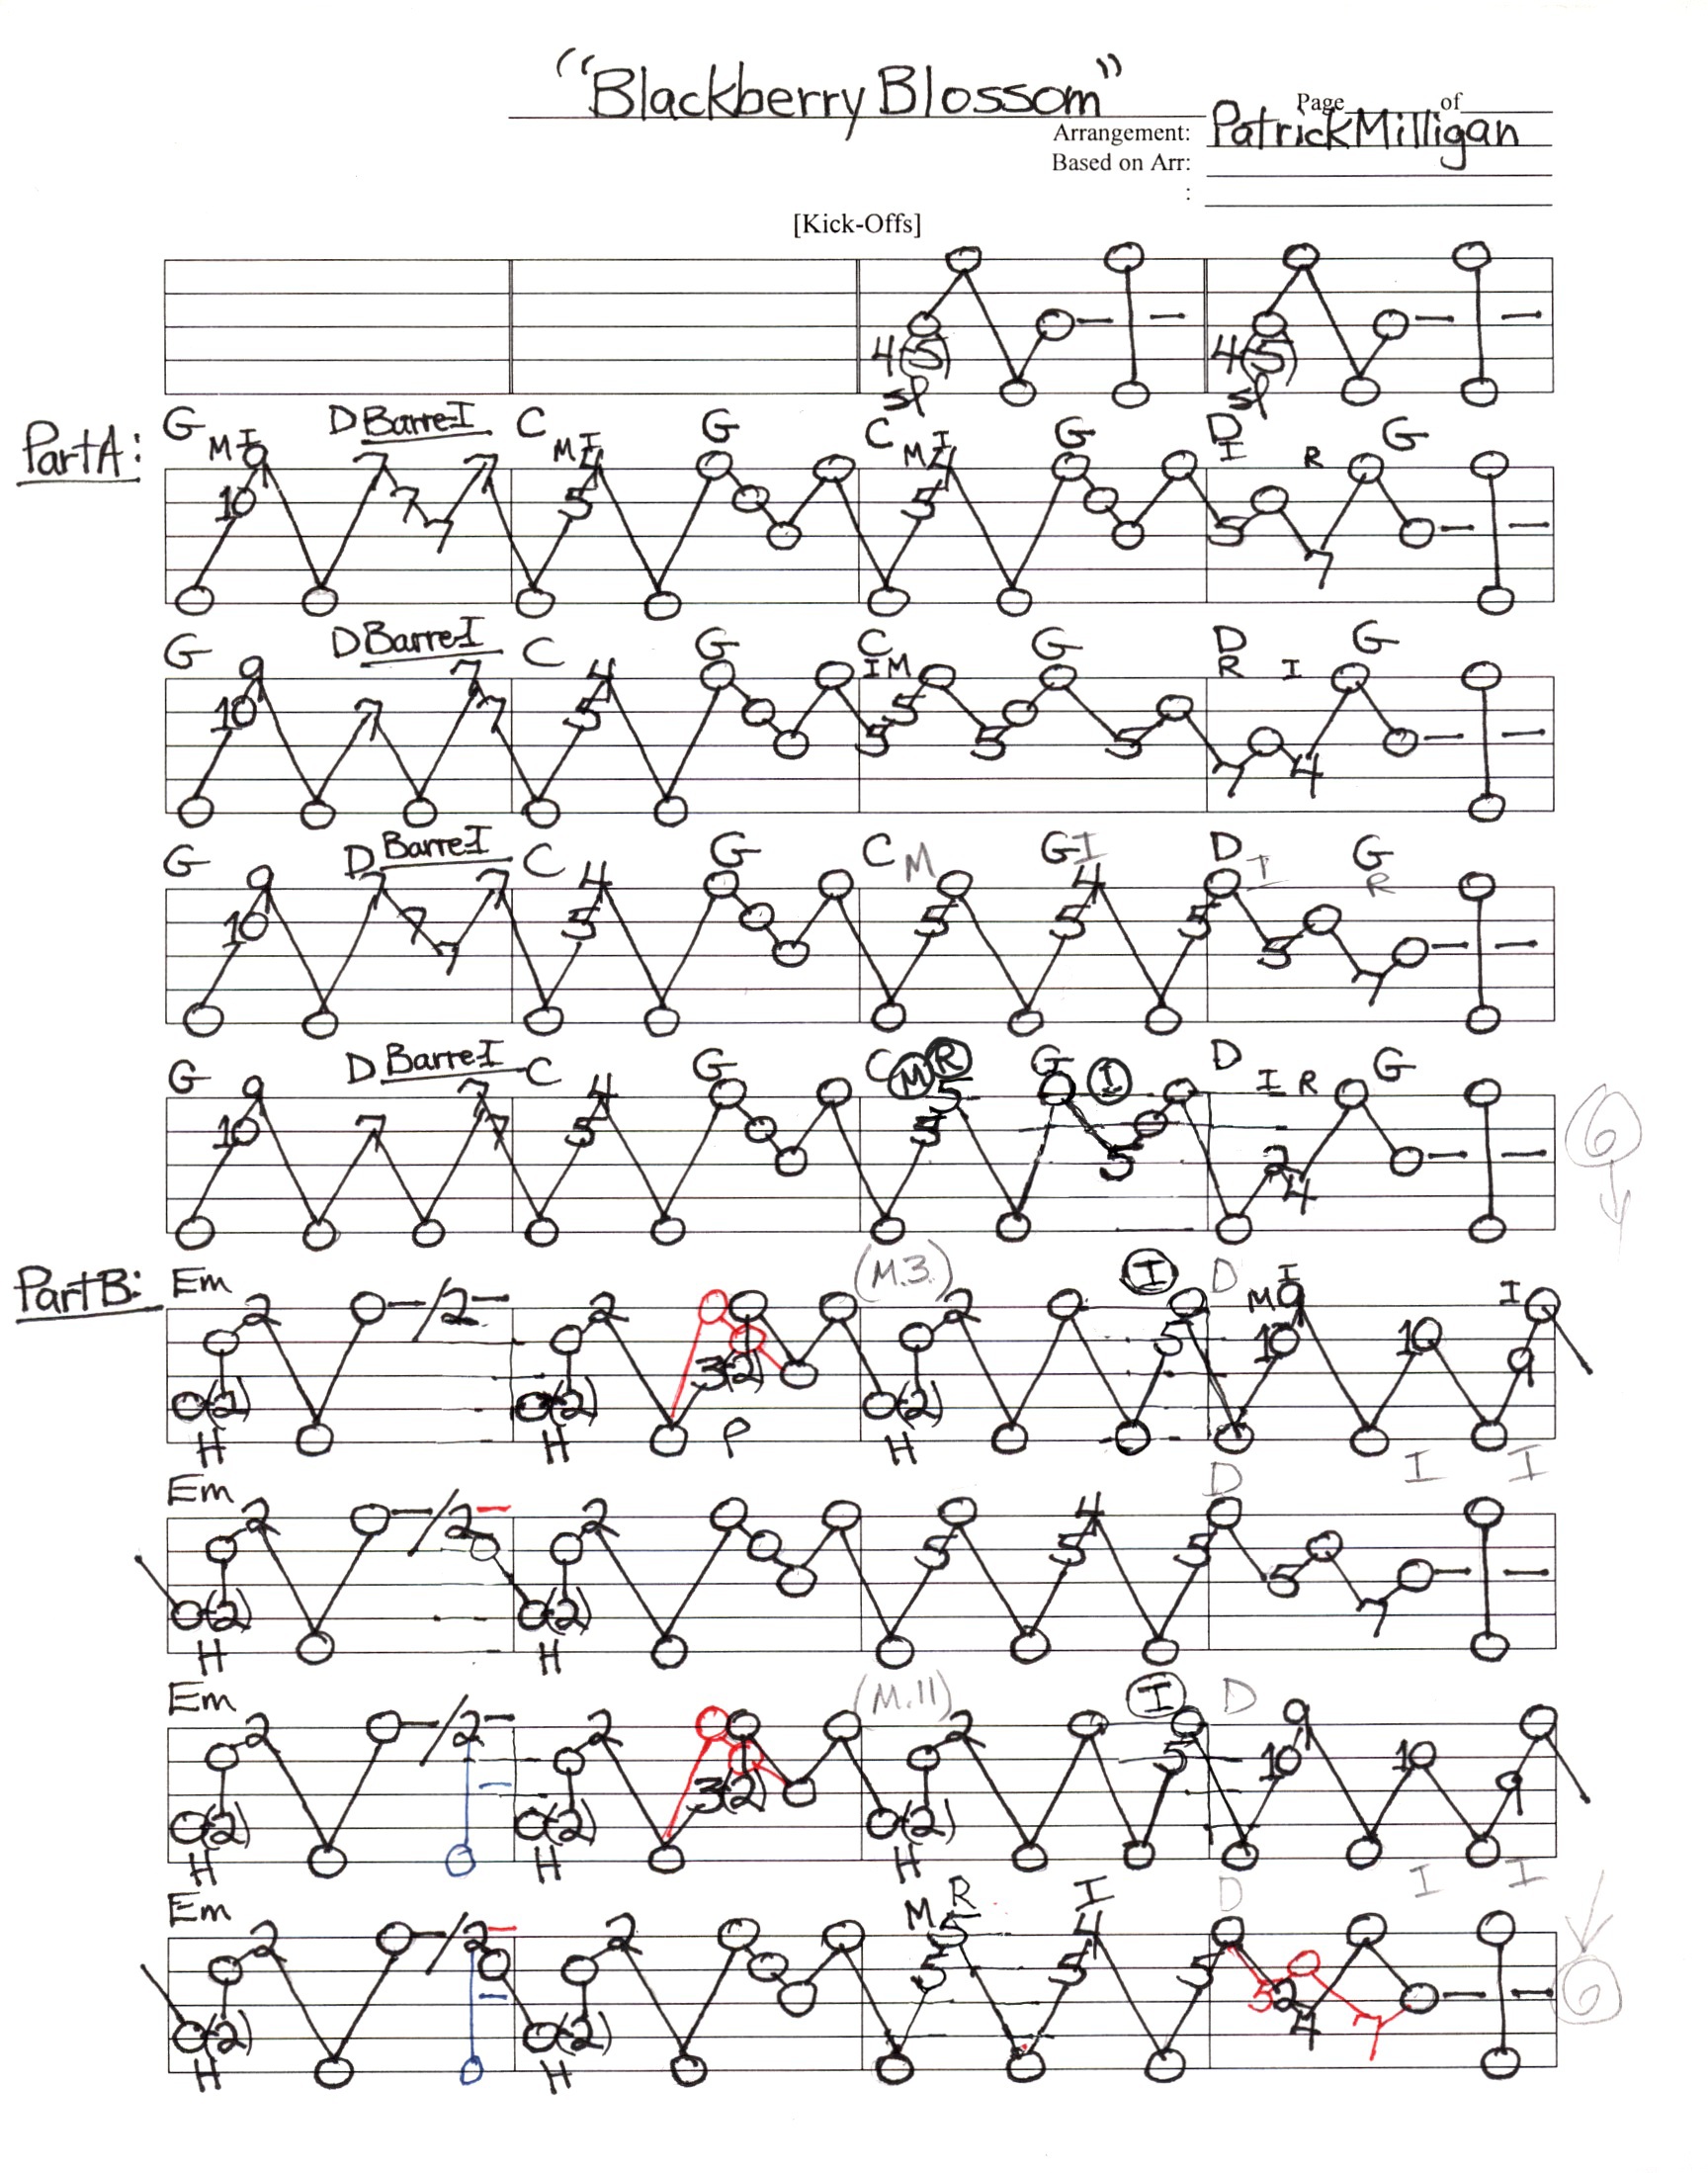 "Blackberry Blossom"
Page of
Arrangement: Patrick Milligan
Based on Arr:
:
[Kick-Offs]
4(5) 4(5)
sl sl
Part A:
G D Barre I C G C G D G
M I M I M I I R
9 7 7 4 4
10 7 5 5
7 5
7
G D Barre I C G C G D G
I M R I
9 7 4
10 7 7 5 5
5 5 5
7 4
G D Barre I C G C G I D G
M I R
9 7 7 4 4
10 7 5 5 5 5
7 5
7
G D Barre I C G C M R G I D G
I R
9 7 4 5
10 7 7 5 5
5 2
4
6
Part B:
Em (M.3) I D
M I I
2 /2 2 2 9
5 10 10
3(2) 9
(2) (2) (2)
H H P H I I
Em D
2 /2 2 4
5 5 5
5
(2) (2) 7
H H
Em (M.11) I D
2 /2 2 2 9
5 10 10
3(2) 9
(2) (2) (2)
H H H I I
Em M R I D
2 /2 2 5 4
5 5 5
5 2 6
(2) (2) 4 7
H H